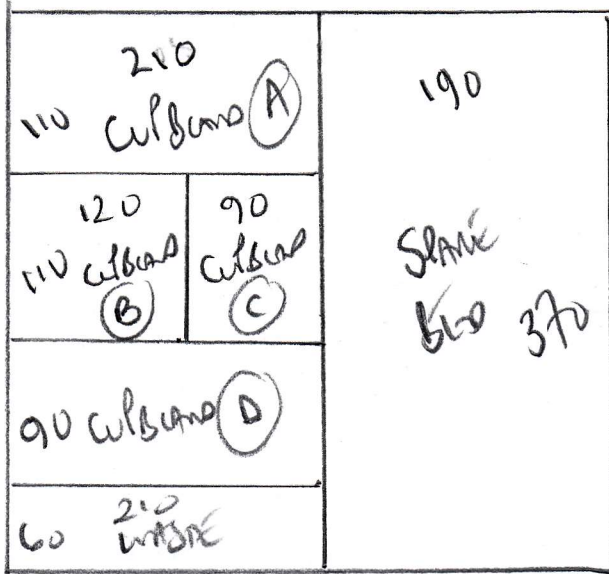 210
110 CUPBOARD A
120
110 CUPBOARD
B
90
CUPBOARD
C
90 CUPBOARD D
210
60 WASTE
190
SPARE
BED 370